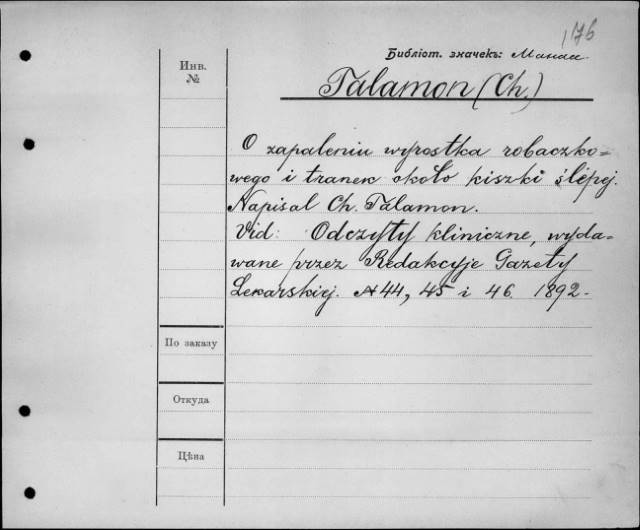 176
Библіот. значекъ: Манаа
Инв.
№
Talamon (Ch.)
O zapaleniu wyrostka robaczko=
wego i tranek około kiszki ślepej.
Napisal Ch. Talamon.
Vid: Odczyty kliniczne, wyda=
wane przez Redakcyje Gazety
Lekarskiej. № 44, 45 i 46. 1892.
По заказу
Откуда
Цѣна